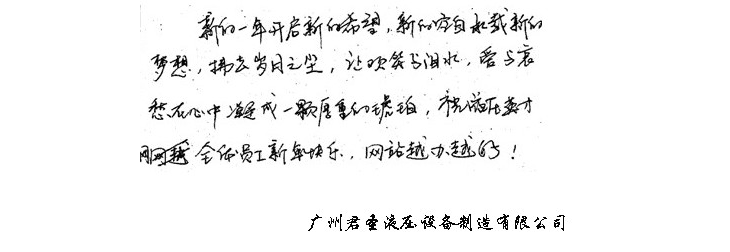 新的一年开启新的希望，新的空白承载新的
梦想，拂去岁月之尘，让欢笑与泪水，爱与哀
愁在心中凝成一颗厚重的琥珀，祝液压英才
网 全体员工新年快乐，网站越办越好！
广州君圣液压设备制造有限公司